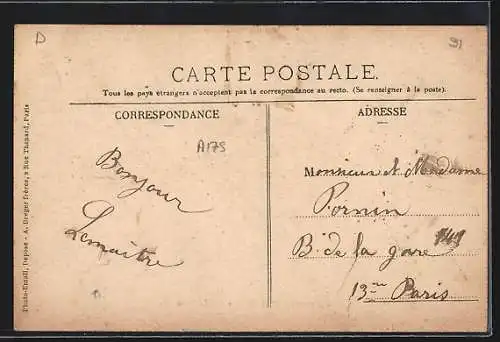 D
91
CARTE POSTALE.
Tous les pays étrangers n'acceptent pas la correspondance au recto. (Se renseigner à la poste).
CORRESPONDANCE
ADRESSE
A178
Bonjour
Lemaître
Monsieur et Madame
Pornin
B. de la gare 149
13me Paris
Photo-Email, Deposé - A. Breger frères, 9 Rue Thénard, Paris